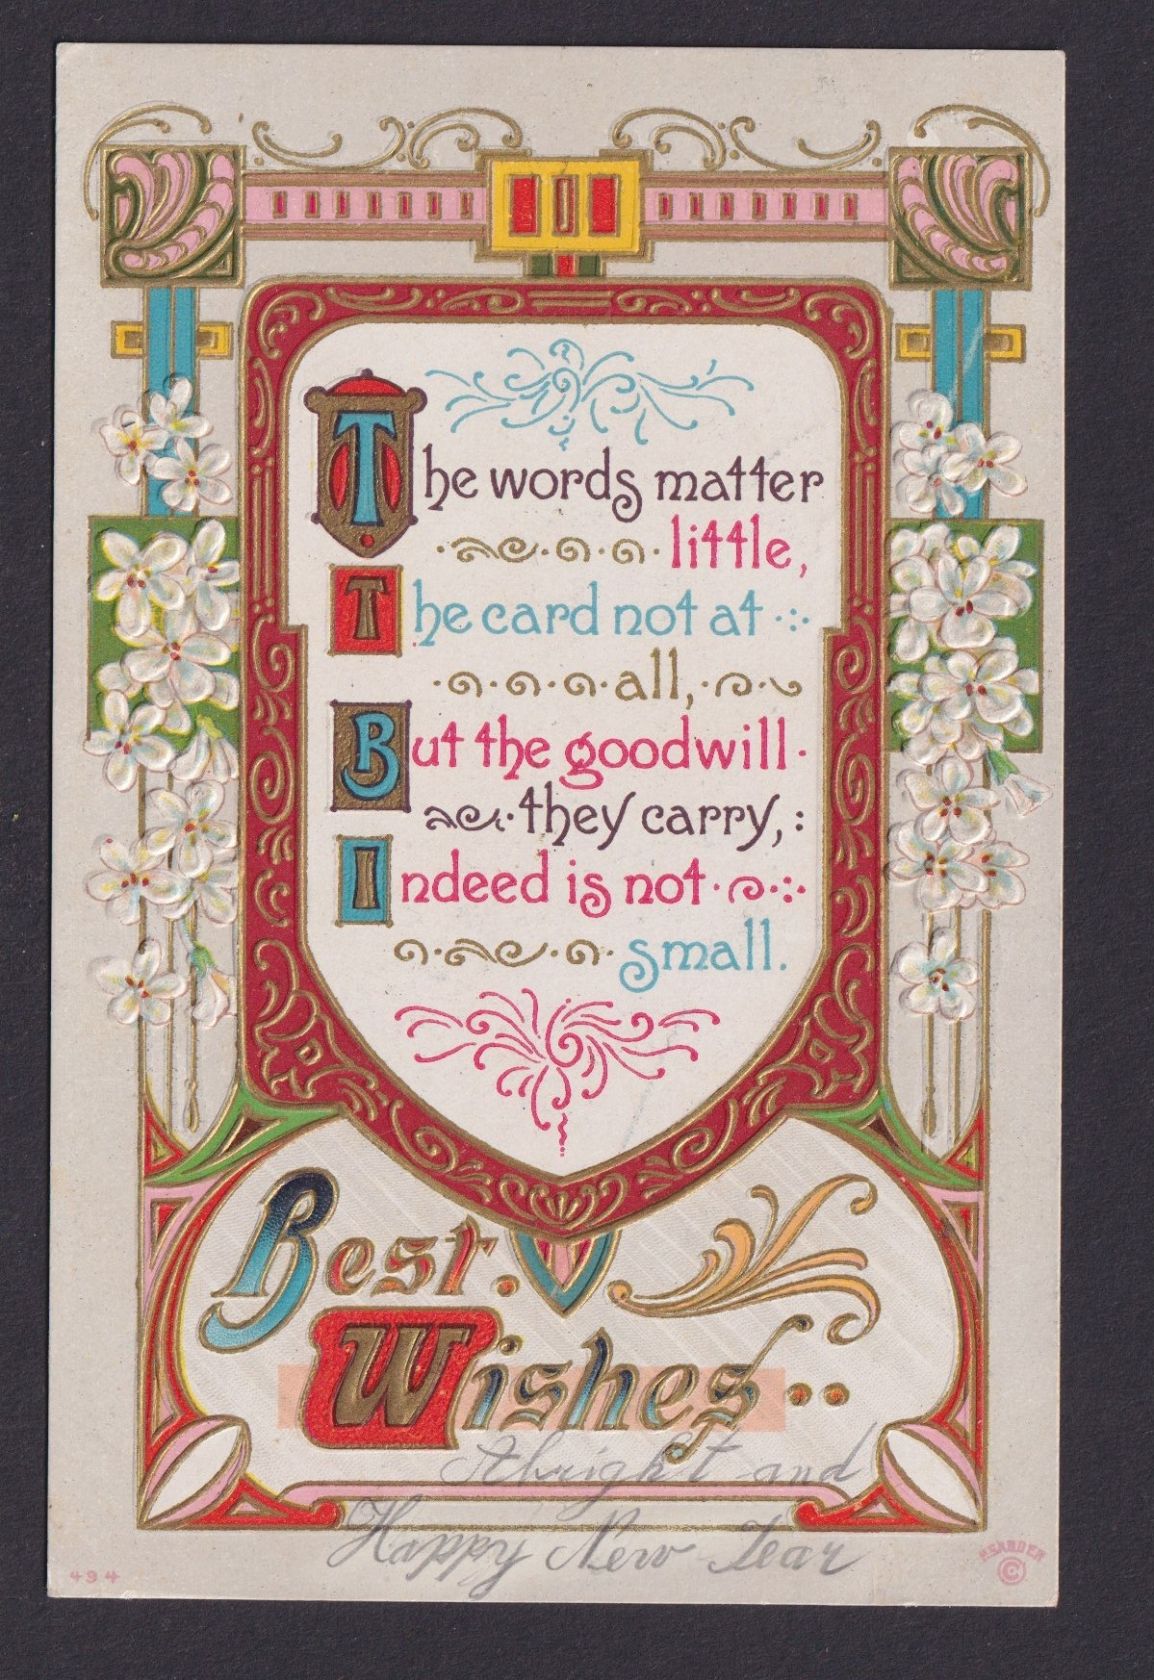 The words matter
little,
The card not at
all,
But the goodwill
they carry,
Indeed is not
small.
Best
Wishes
and
Happy New Year
494
P. SANDER
©